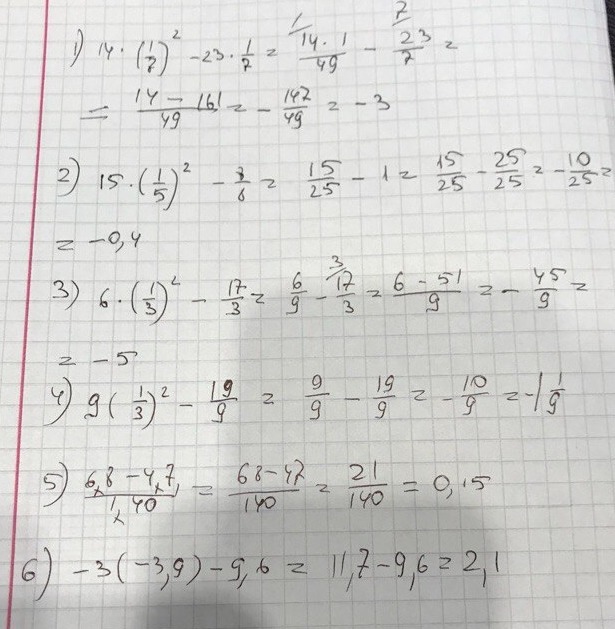 1) 14 · (1/7)² - 23 · 1/7 = 14 · 1/49 - 23/7 =
= 14 - 161/49 = - 147/49 = - 3
2) 15 · (1/5)² - 8/8 = 15/25 - 1 = 15/25 - 25/25 = - 10/25 =
= - 0,4
3) 6 · (1/3)² - 17/3 = 6/9 - 17/3 = 6 - 51/9 = - 45/9 =
= - 5
4) 9 (1/3)² - 19/9 = 9/9 - 19/9 = - 10/9 = - 1 1/9
5) 6,8 - 4,7/1,40 = 68 - 47/140 = 21/140 = 0,15
6) - 3 (- 3,9) - 9,6 = 11,7 - 9,6 = 2,1